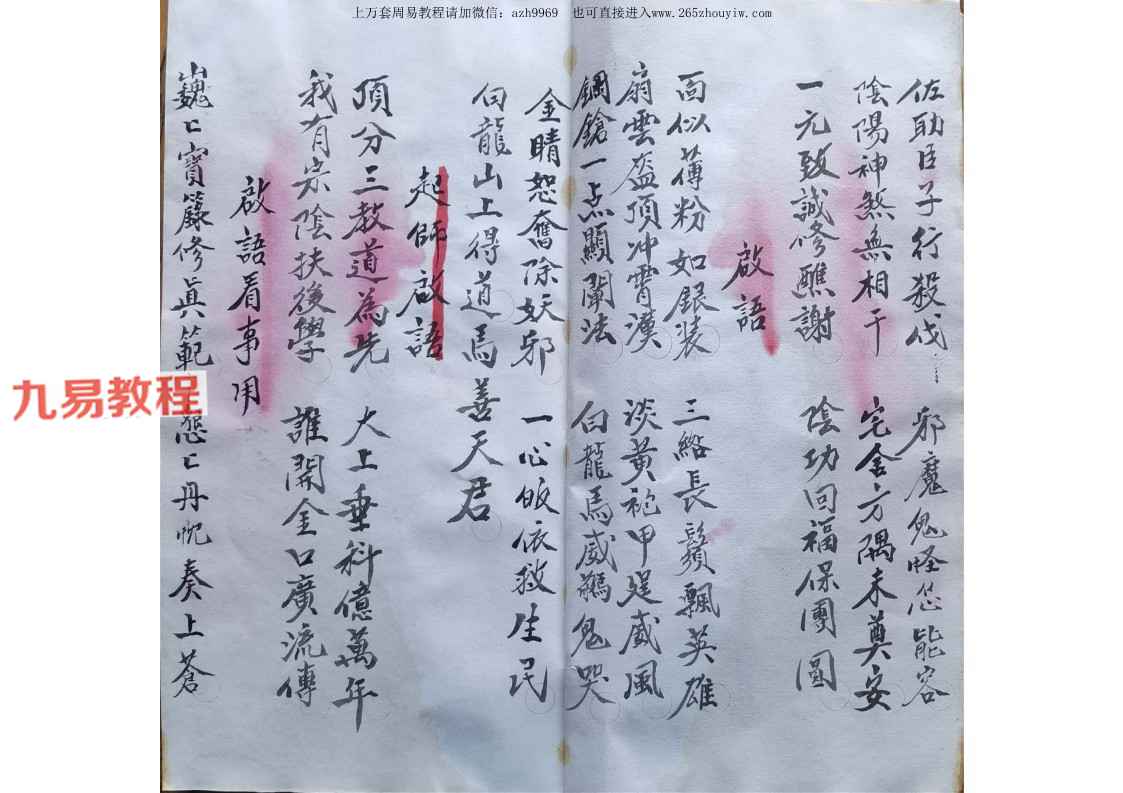 上万套周易教程请加微信：azh9969 也可直接进入www.265zhouyiw.com
佐助臣子行殺伐 邪魔鬼怪怎能容
陰陽神煞無相干 宅舍方隅未奠安
一元致誠修醮謝 陰功回福保團圓
啟語
面似薄粉如銀装 三綹長鬚飄英雄
扇雲盔頂冲霄漢 淡黄袍甲逞威風
鋼鎗一点顯闡法 白龍馬威鷔鬼哭
金睛恕奮除妖邪 一心皈依救生民
白龍山上得道馬善天君
起師啟語
頂分三教道為先 大上垂科億萬年
我有宗陰扶後學 誰開金口廣流傳
啟語看事用
巍匕寶籙修眞範 懇匕丹忱奏上蒼
九易教程